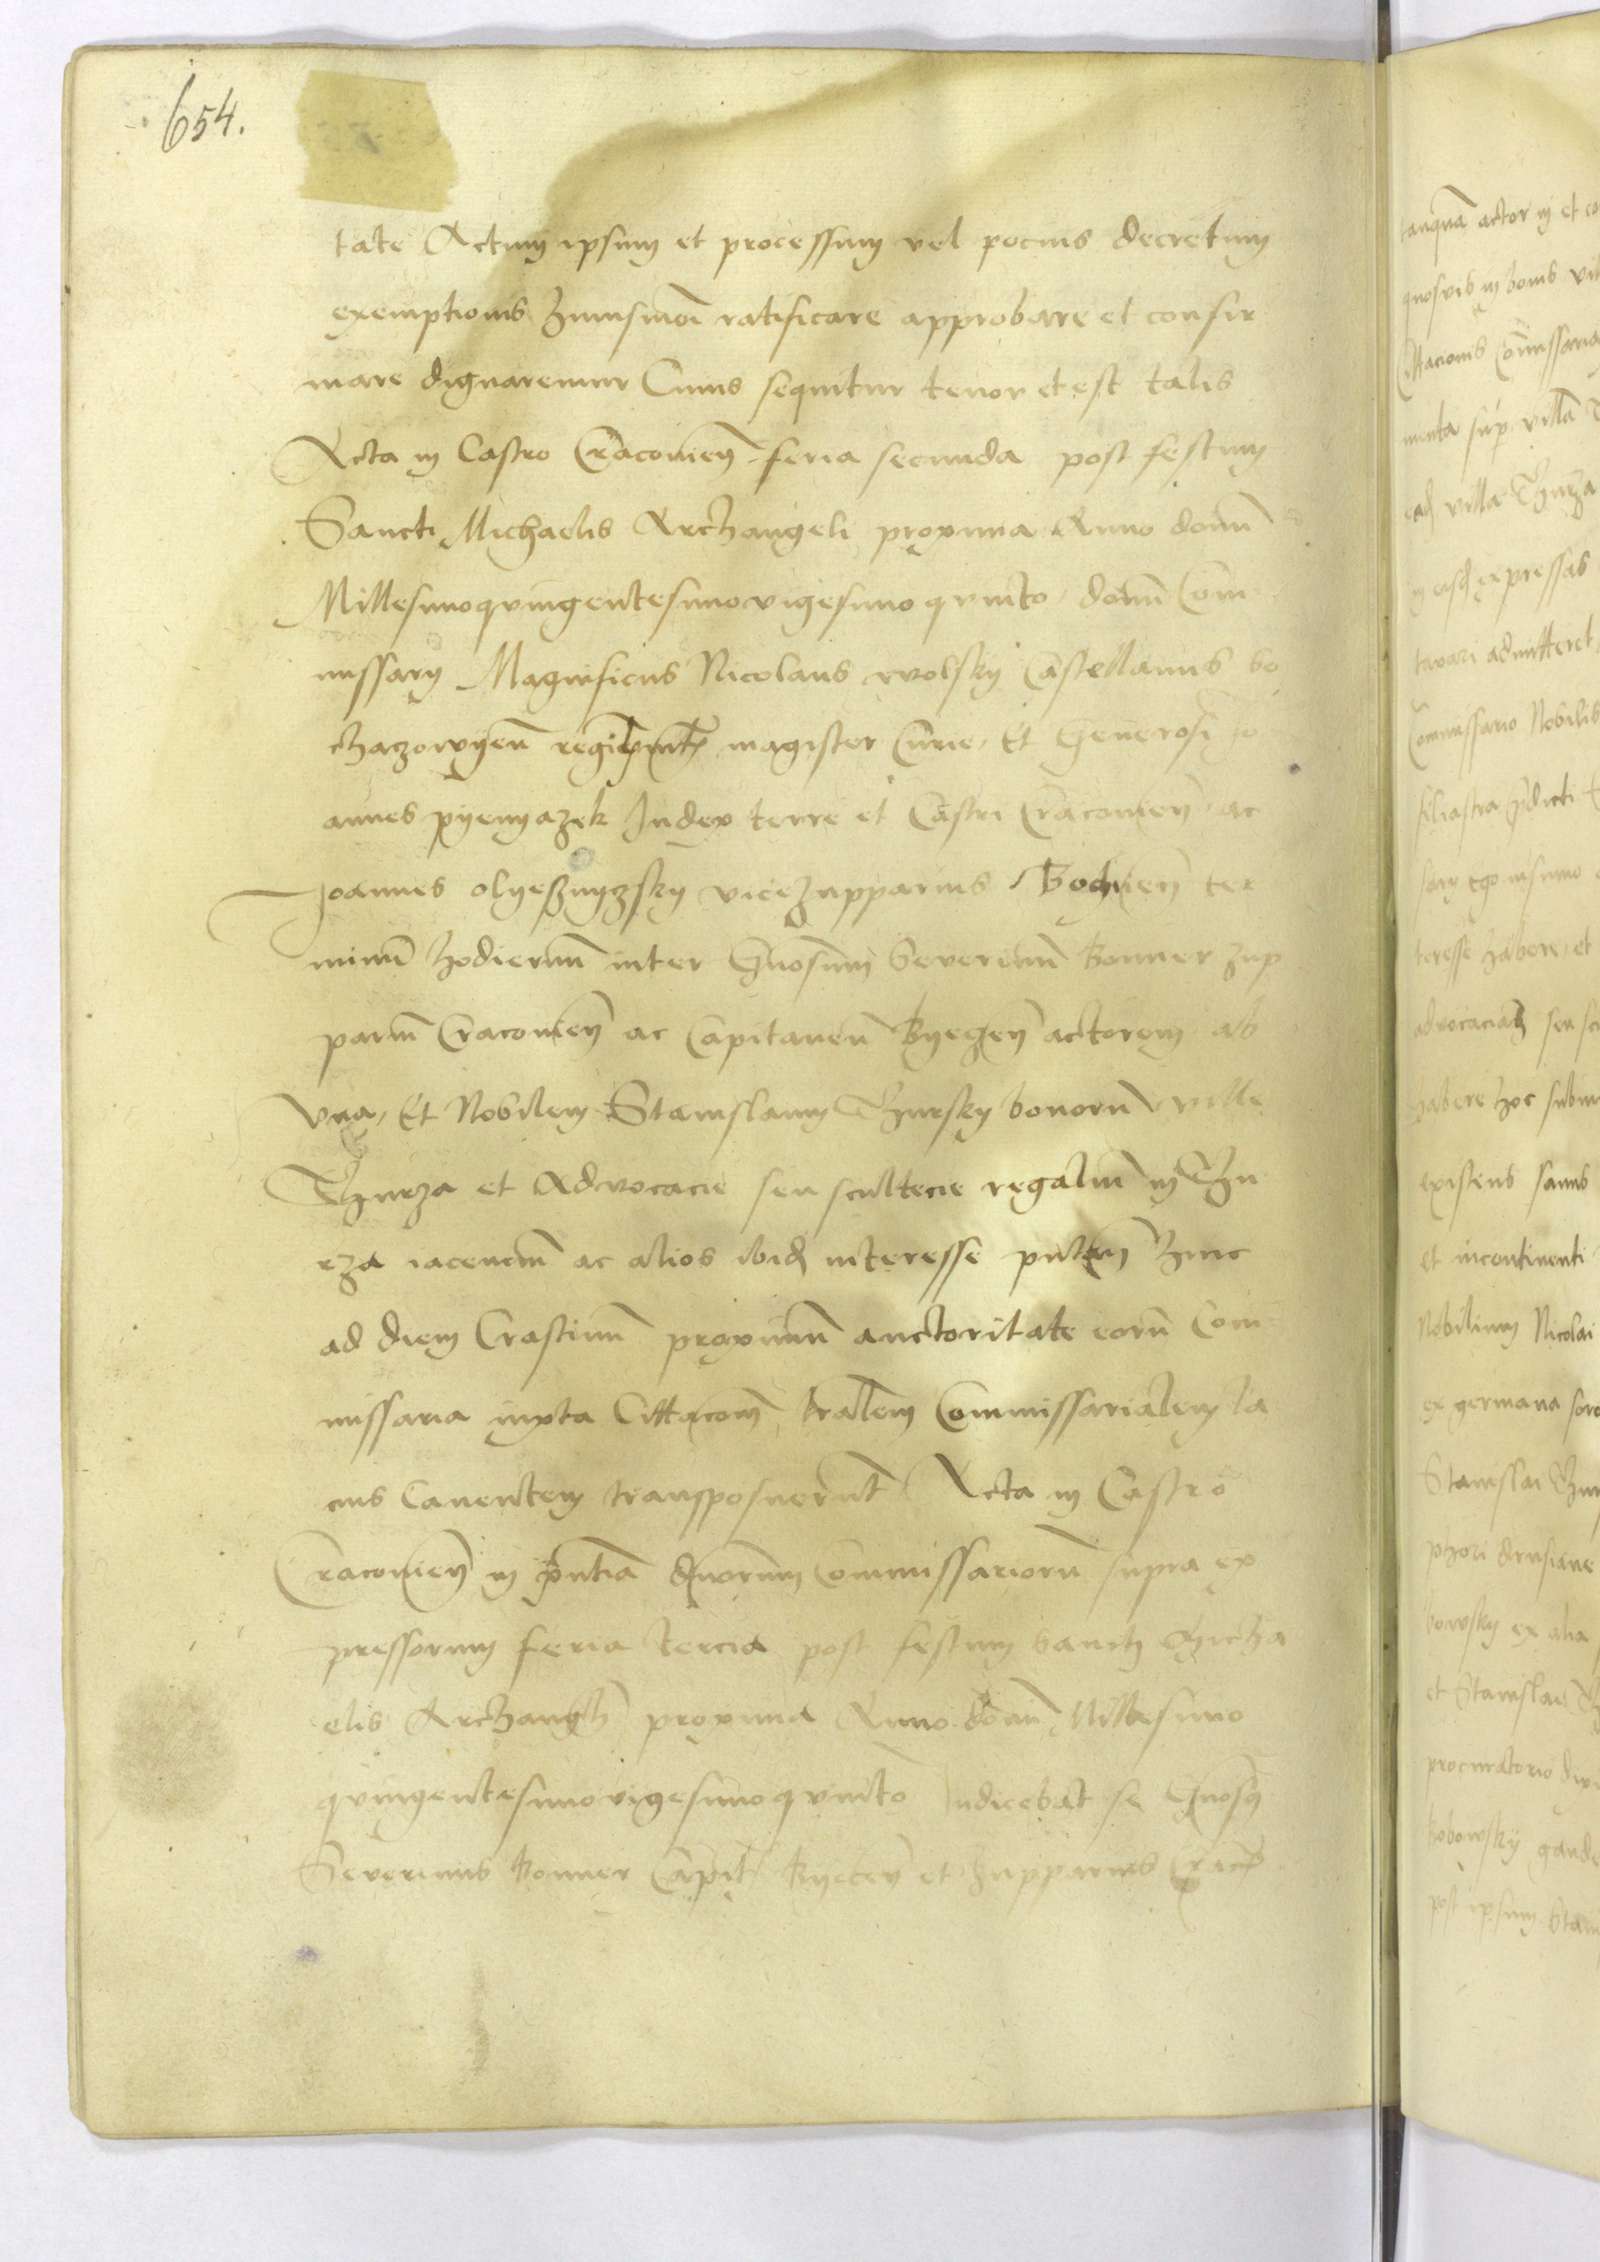 654.
tate Actum ipsum et processum vel pocius decretum
exemptionis huiusmoi ratificare approbare et confir
mare dignaremur Cuius sequitur tenor et est talis
Acta in Castro Cracovien feria secunda post festum
Sancti Michaelis Archangeli proxima Anno domi
Millesimoquingentesimovigesimo quinto domi Com
missary Magnificus Nicolaus wolsky Castellanus so
chaczowyen magister Curie Et Generosi Jo
annes pyenyazek Judex terre et Castri Cracovien ac
Joannes olyesznyczsky vicezupparius Bochnen ter
minu hodiernu inter Gnosum Severinu Bonner zup
pariu Cracovien ac Capitaneu Byeczen actorem ab
una Et Nobilem Stanislaum Thursky bonoru ville
Thurza et Advocacie seu scultecie regaliu in Thu
rza iacenciu ac alios ibid interesse putan hinc
ad diem Crastinu proximu auctoritate eoru Com
missaria iuxta Cittacom tralem Commissarialem la
cius Canentem transposuerunt Acta in Castro
Cracovien in pntia quorum Commissarioru supra ex
pressorum feria tercia post festum Sancti Micha
elis Archangeli proxima Anno domi Millesimo
quingentesimovigesimo quinto Judicebat se Gnosus
Severinus Bonner Capit Byecen et Zupparius Crac
tanqua actor in et co
quosvis in bonis
Citacionis Comissaria
villa
ead villa Thurza
in eisd expressas
admitteret
Commissario Nobilis
filiastra pdicti
teresse habere et
advocacia seu sc
habere hoc
existens
et incontinenti
Nobilium Nicolai
ex germana soro
Stanislai Thur
bowsky ex alia
et Stanislai
procuratorio
kobowsky gaude
post ipsum Stani